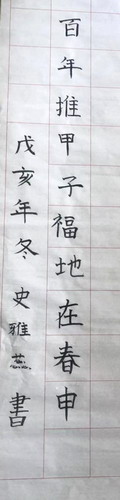 百年推甲子福地在春申
戊亥年冬 史雅 書